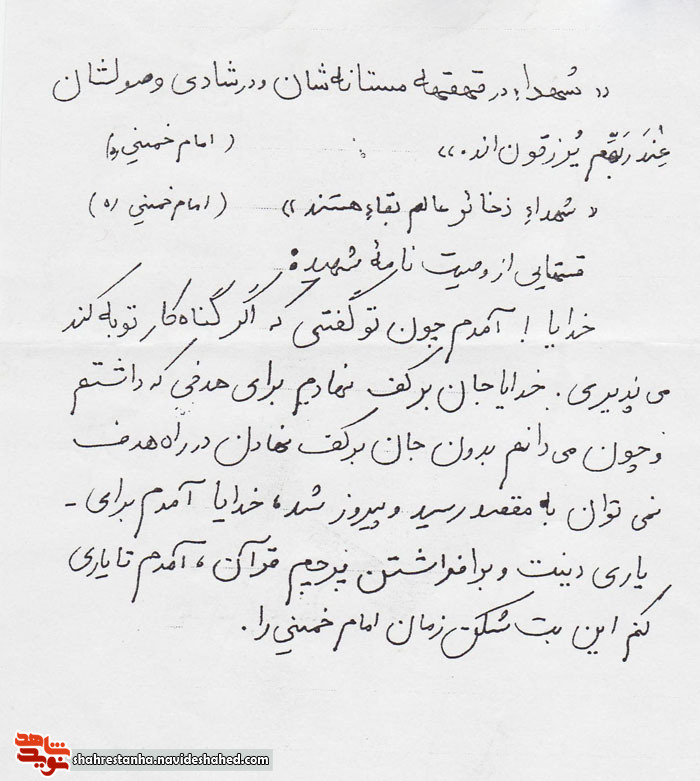 « شهداء در قهقههٔ مستانه‌شان و در شادی وصولشان
عِندَ رَبِّهِم یُرزقون‌اند. » ( امام خمینی ره)
« شهداء ذخائر عالم بقاء هستند » ( امام خمینی ره )
قسمتهایی از وصیت نامهٔ شهید:
خدایا ! آمدم چون تو گفتی که اگر گناه‌کار توبه کند
می پذیری. خدایا جان بر کف نهادیم برای هدفی که داشتم
و چون می دانم بدون جان بر کف نهادن در راه هدف
نمی توان به مقصد رسید و پیروز شد، خدایا آمدم برای -
یاری دینت و برافراشتن پرچم قرآن، آمدم تا یاری
کنم این بت شکن زمان امام خمینی را.
نوید شاهد
shahrestanha.navideshahed.com